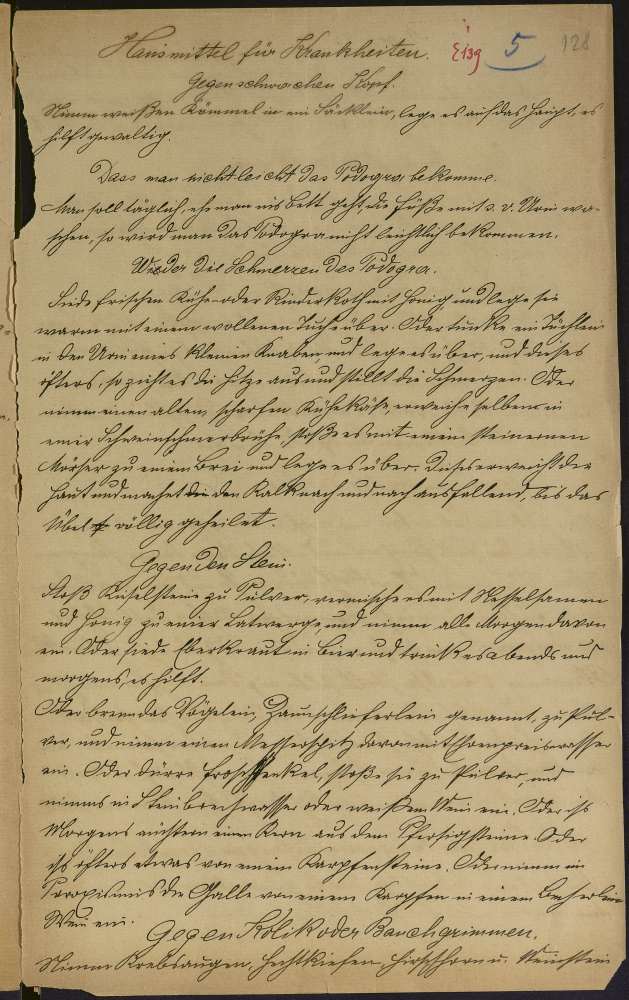 Hausmittel für Krankheiten. 5 128
E139
Gegen schwachen Kopf.
Nimm weißen Kümmel in ein Säcklein, lege es auf das Haupt, es
hilft gewaltig.
Dass man nicht leicht das Podogra bekomme.
Man soll täglich, ehe man ins Bett geht, die Füße mit s. v. Urin wa-
schen, so wird man das Podogra nicht leichtlich bekommen.
Wieder die Schmerzen des Podogra.
Siede frischen Kühe- oder Rinderkoth mit Honig und lege sie
warm mit einem wollenen Tuche über. Oder tunke ein Tüchlein
in den Urin eines kleinen Knaben, und lege es über, und dieses
öfters, so zieht es die Hitze aus und stillt die Schmerzen. Oder
nimm einen alten, scharfen Kühekäse, erweiche selben in
einer Schweinschmerbrühe, stoß es mit einem steinernen
Mörser zu einem Brei und lege es über. Dieses erweicht die
Haut und machet den Kalk nach und nach ausfallend, bis das
Übel völlig geheilet.
Gegen den Stein.
Stoß Kieselsteine zu Pulver, vermische es mit Nesselsamen
und Honig zu einer Latwerge, und nimm alle Morgen davon
ein. Oder siede Eberkraut in Bier und trink es abends und
morgens, es hilft.
Oder brenn das Vögelein, Zaunschlieferlein genannt, zu Pul-
ver, und nimm einen Messerspitz davon mit Ehrenpreiswasser
ein. Oder dürre Froschschenkel, stoße sie zu Pulver, und
nimms in Steinbrechwasser oder weißem Wein ein. Oder iss
Morgens nüchtern einen Kern aus dem Pfirsichsteine. Oder
iss öfters etwas von einem Karpfensteine. Oder nimm im
die Galle von einem Karpfen in einem Becherlein
Wein ein.
Gegen Kolik oder Bauchgrimmen.
Nimm Krebsaugen, Hechtkiefen, Hirschhorn u. Weinstein